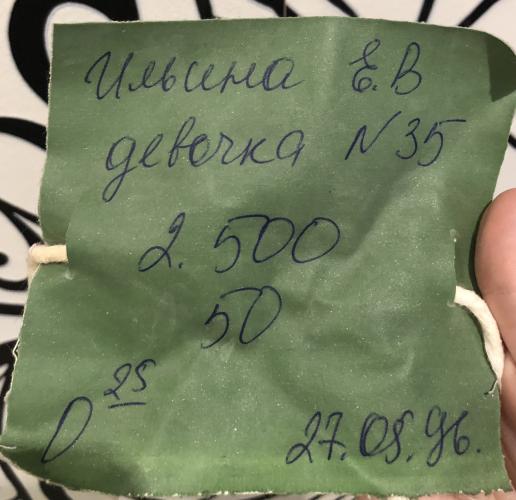 Ильина Е.В
девочка N 35
2. 500
50
0 25 27.08.96.